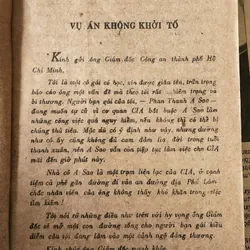 VỤ ÁN KHÔNG KHỞI TỐ
Kính gửi ông Giám đốc Công an thành phố Hồ
Chí Minh,
Tôi là một cô gái có học, xin được giấu tên, trân trọng
báo cáo ông một vấn đề mà theo tôi rất ...hiểm trọng và
bi thương. Người bạn gái của tôi, — Phan Thanh A Sao —
đang muốn tự sát vì cơ quan CIA bắt buộc A Sao làm
những công việc quá nguy hiểm, nếu không thì có thể bị
chúng thủ tiêu. Mặc dù có ý định như vậy, nhưng dường
như cô ấy cũng không đủ can đảm lìa đời trong tuổi
thanh xuân, nên A Sao vẫn còn tiếp tục làm việc cho CIA
mãi đến giờ phút này.
Nhà cô A Sao là một trạm liên lạc của CIA, ở cạnh
tiệm cà phê gần đường đi vào an dưỡng địa Phú Lâm—
chắc nhân viên của ông không thấy khó khăn trong việc
tìm kiếm !
Tôi nói rõ những điều như trên với hy vọng ông Giám
đốc sẽ mở một con đường sống cho người bạn gái kiều
diễm của tôi đang lâm vào một cảnh ngộ đáng thương.
Kính chúc ông Giám đốc mạnh khỏe